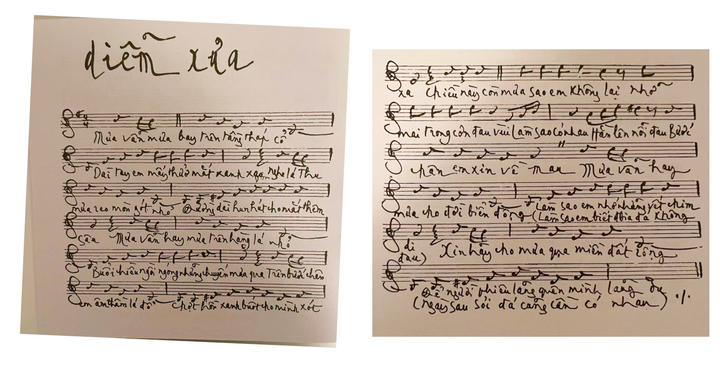 diễm xưa
Mưa vẫn mưa bay trên tầng tháp cổ
Dài tay em mấy thuở mắt xanh xao Nghe lá thu
mưa reo mòn gót nhỏ Đường dài hun hút cho mắt thêm
sâu Mưa vẫn hay mưa trên hàng lá nhỏ
Buổi chiều ngồi ngóng những chuyến mưa qua Trên bước chân
em âm thầm lá đổ Chợt hồn xanh buốt cho mình xót
xa Chiều này còn mưa sao em không lại nhỡ
mai trong cơn đau vùi Làm sao có nhau Hằn lên nỗi đau Bước
chân em xin về mau Mưa vẫn hay
mưa cho đời biển động Làm sao em nhớ những vết chim
(Làm sao em biết bia đá không
di Xin hãy cho mưa qua miền đất rộng
đau)
Để người phiêu lãng quên mình lãng du
(Ngày sau sỏi đá cũng cần có nhau)